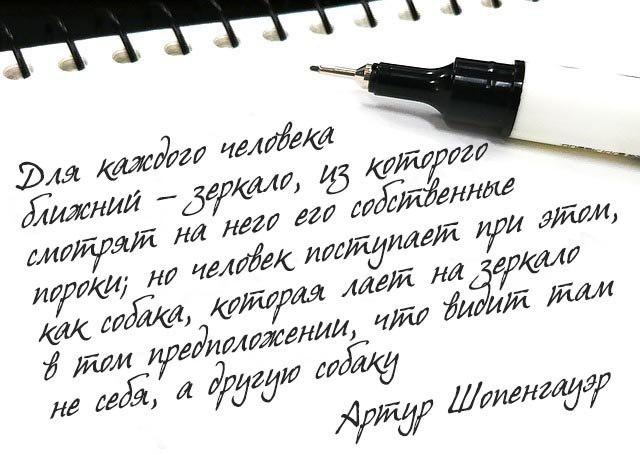 Для каждого человека
ближний – зеркало, из которого
смотрят на него его собственные
пороки; но человек поступает при этом,
как собака, которая лает на зеркало
в том предположении, что видит там
не себя, а другую собаку
Артур Шопенгауэр